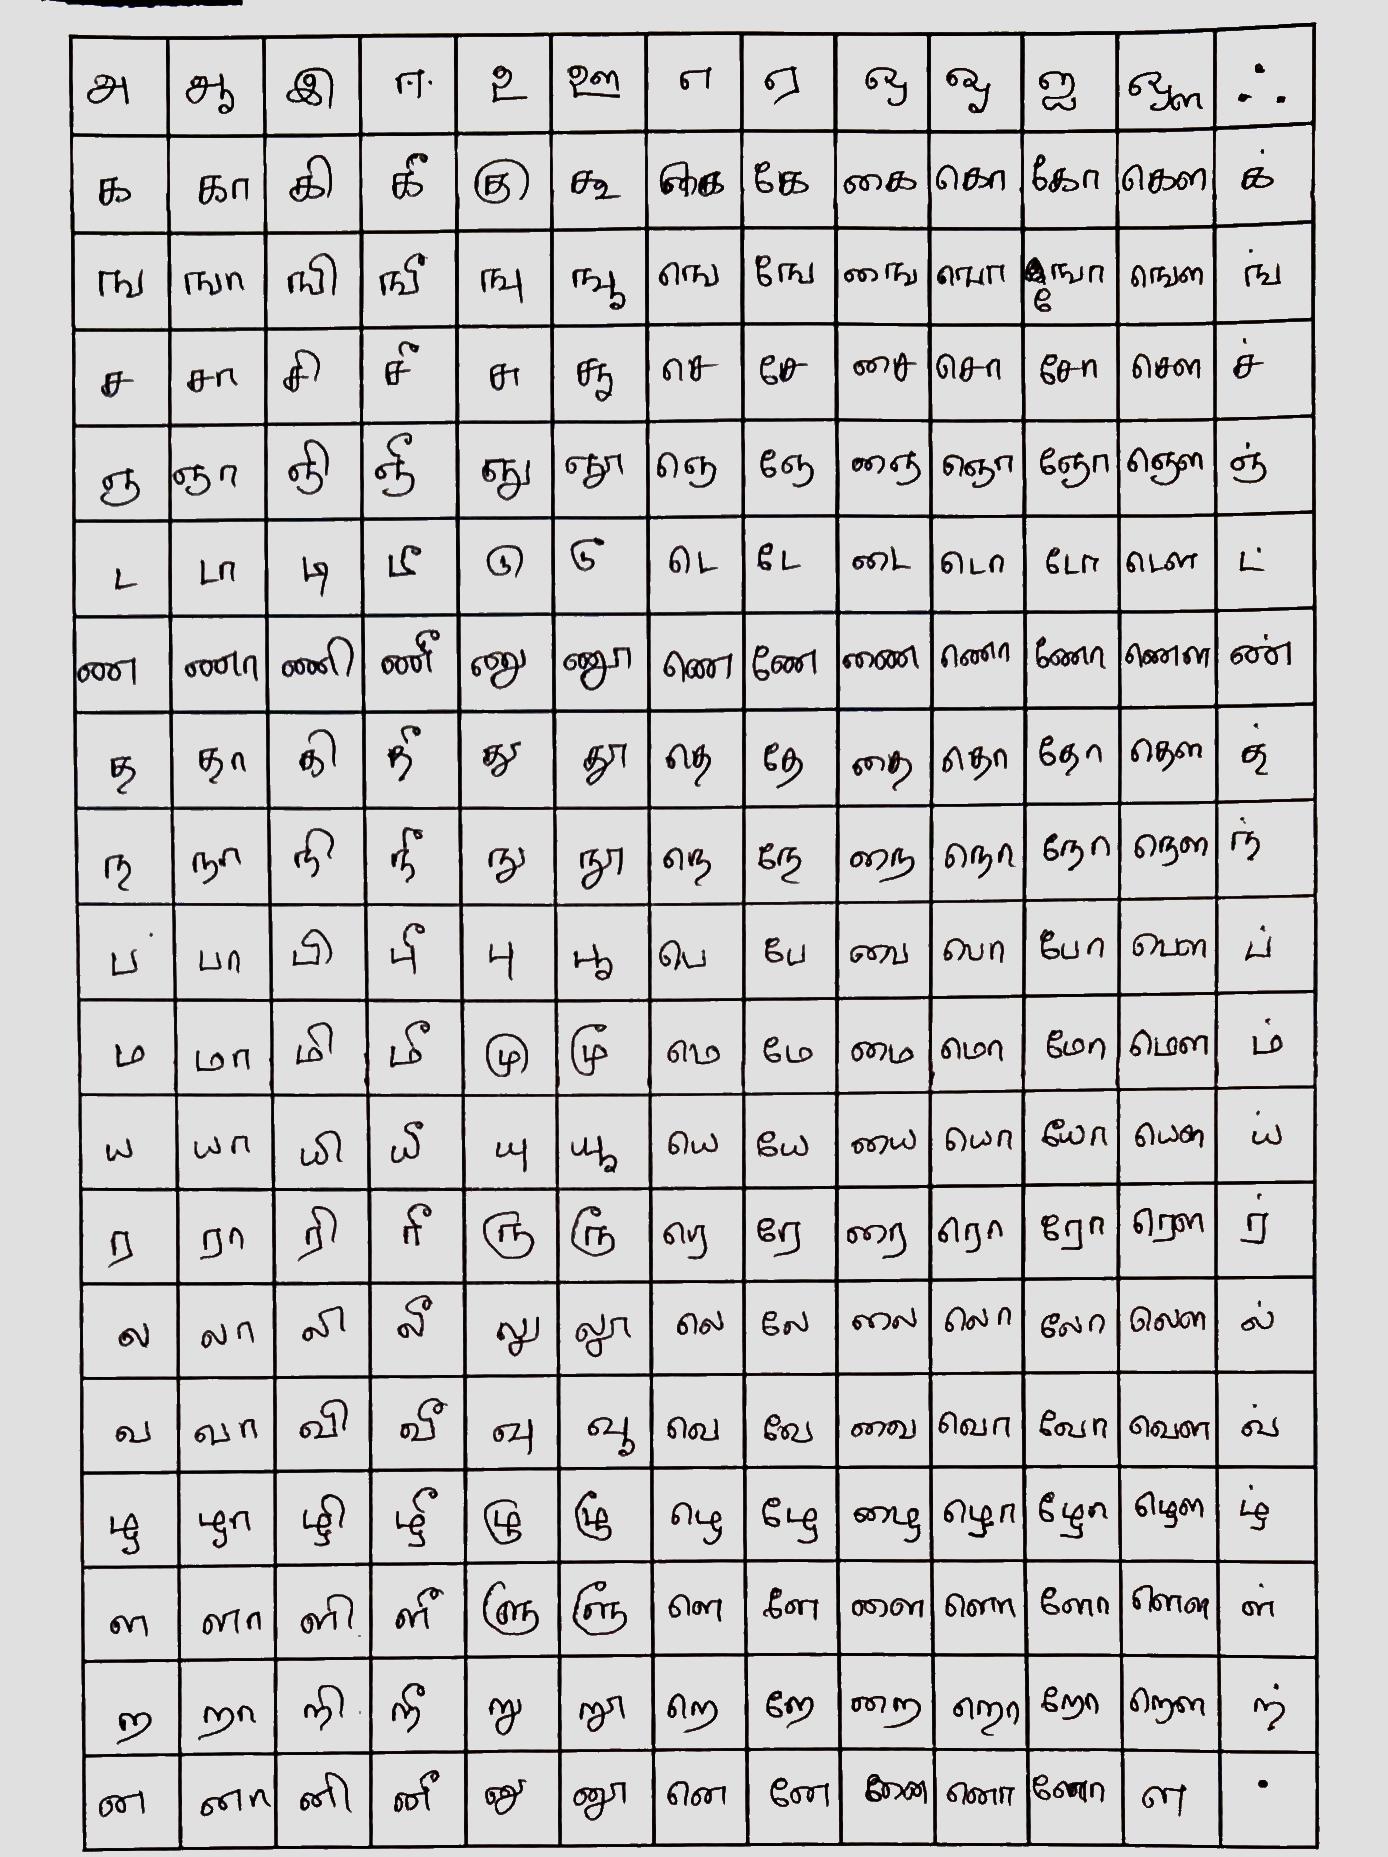 அ ஆ இ ஈ உ ஊ எ ஏ ஒ ஓ ஐ ஔ ஃ
க கா கி கீ கு கூ கெ கே கை கொ கோ கௌ க்
ங ஙா ஙி ஙீ ஙு ஙூ ஙெ ஙே ஙை ஙொ ஙோ ஙௌ ங்
ச சா சி சீ சு சூ செ சே சை சொ சோ சௌ ச்
ஞ ஞா ஞி ஞீ ஞு ஞூ ஞெ ஞே ஞை ஞொ ஞோ ஞௌ ஞ்
ட டா டி டீ டு டூ டெ டே டை டொ டோ டௌ ட்
ண ணா ணி ணீ ணு ணூ ணெ ணே ணை ணொ ணோ ணௌ ண்
த தா தி தீ து தூ தெ தே தை தொ தோ தௌ த்
ந நா நி நீ நு நூ நெ நே நை நொ நோ நௌ ந்
ப பா பி பீ பு பூ பெ பே பை பொ போ பௌ ப்
ம மா மி மீ மு மூ மெ மே மை மொ மோ மௌ ம்
ய யா யி யீ யு யூ யெ யே யை யொ யோ யௌ ய்
ர ரா ரி ரீ ரு ரூ ரெ ரே ரை ரொ ரோ ரௌ ர்
ல லா லி லீ லு லூ லெ லே லை லொ லோ லௌ ல்
வ வா வி வீ வு வூ வெ வே வை வொ வோ வௌ வ்
ழ ழா ழி ழீ ழு ழூ ழெ ழே ழை ழொ ழோ ழௌ ழ்
ள ளா ளி ளீ ளு ளூ ளெ ளே ளை ளொ ளோ ளௌ ள்
ற றா றி றீ று றூ றெ றே றை றொ றோ றௌ ற்
ன னா னி னீ னு னூ னெ னே னை னொ னோ ள